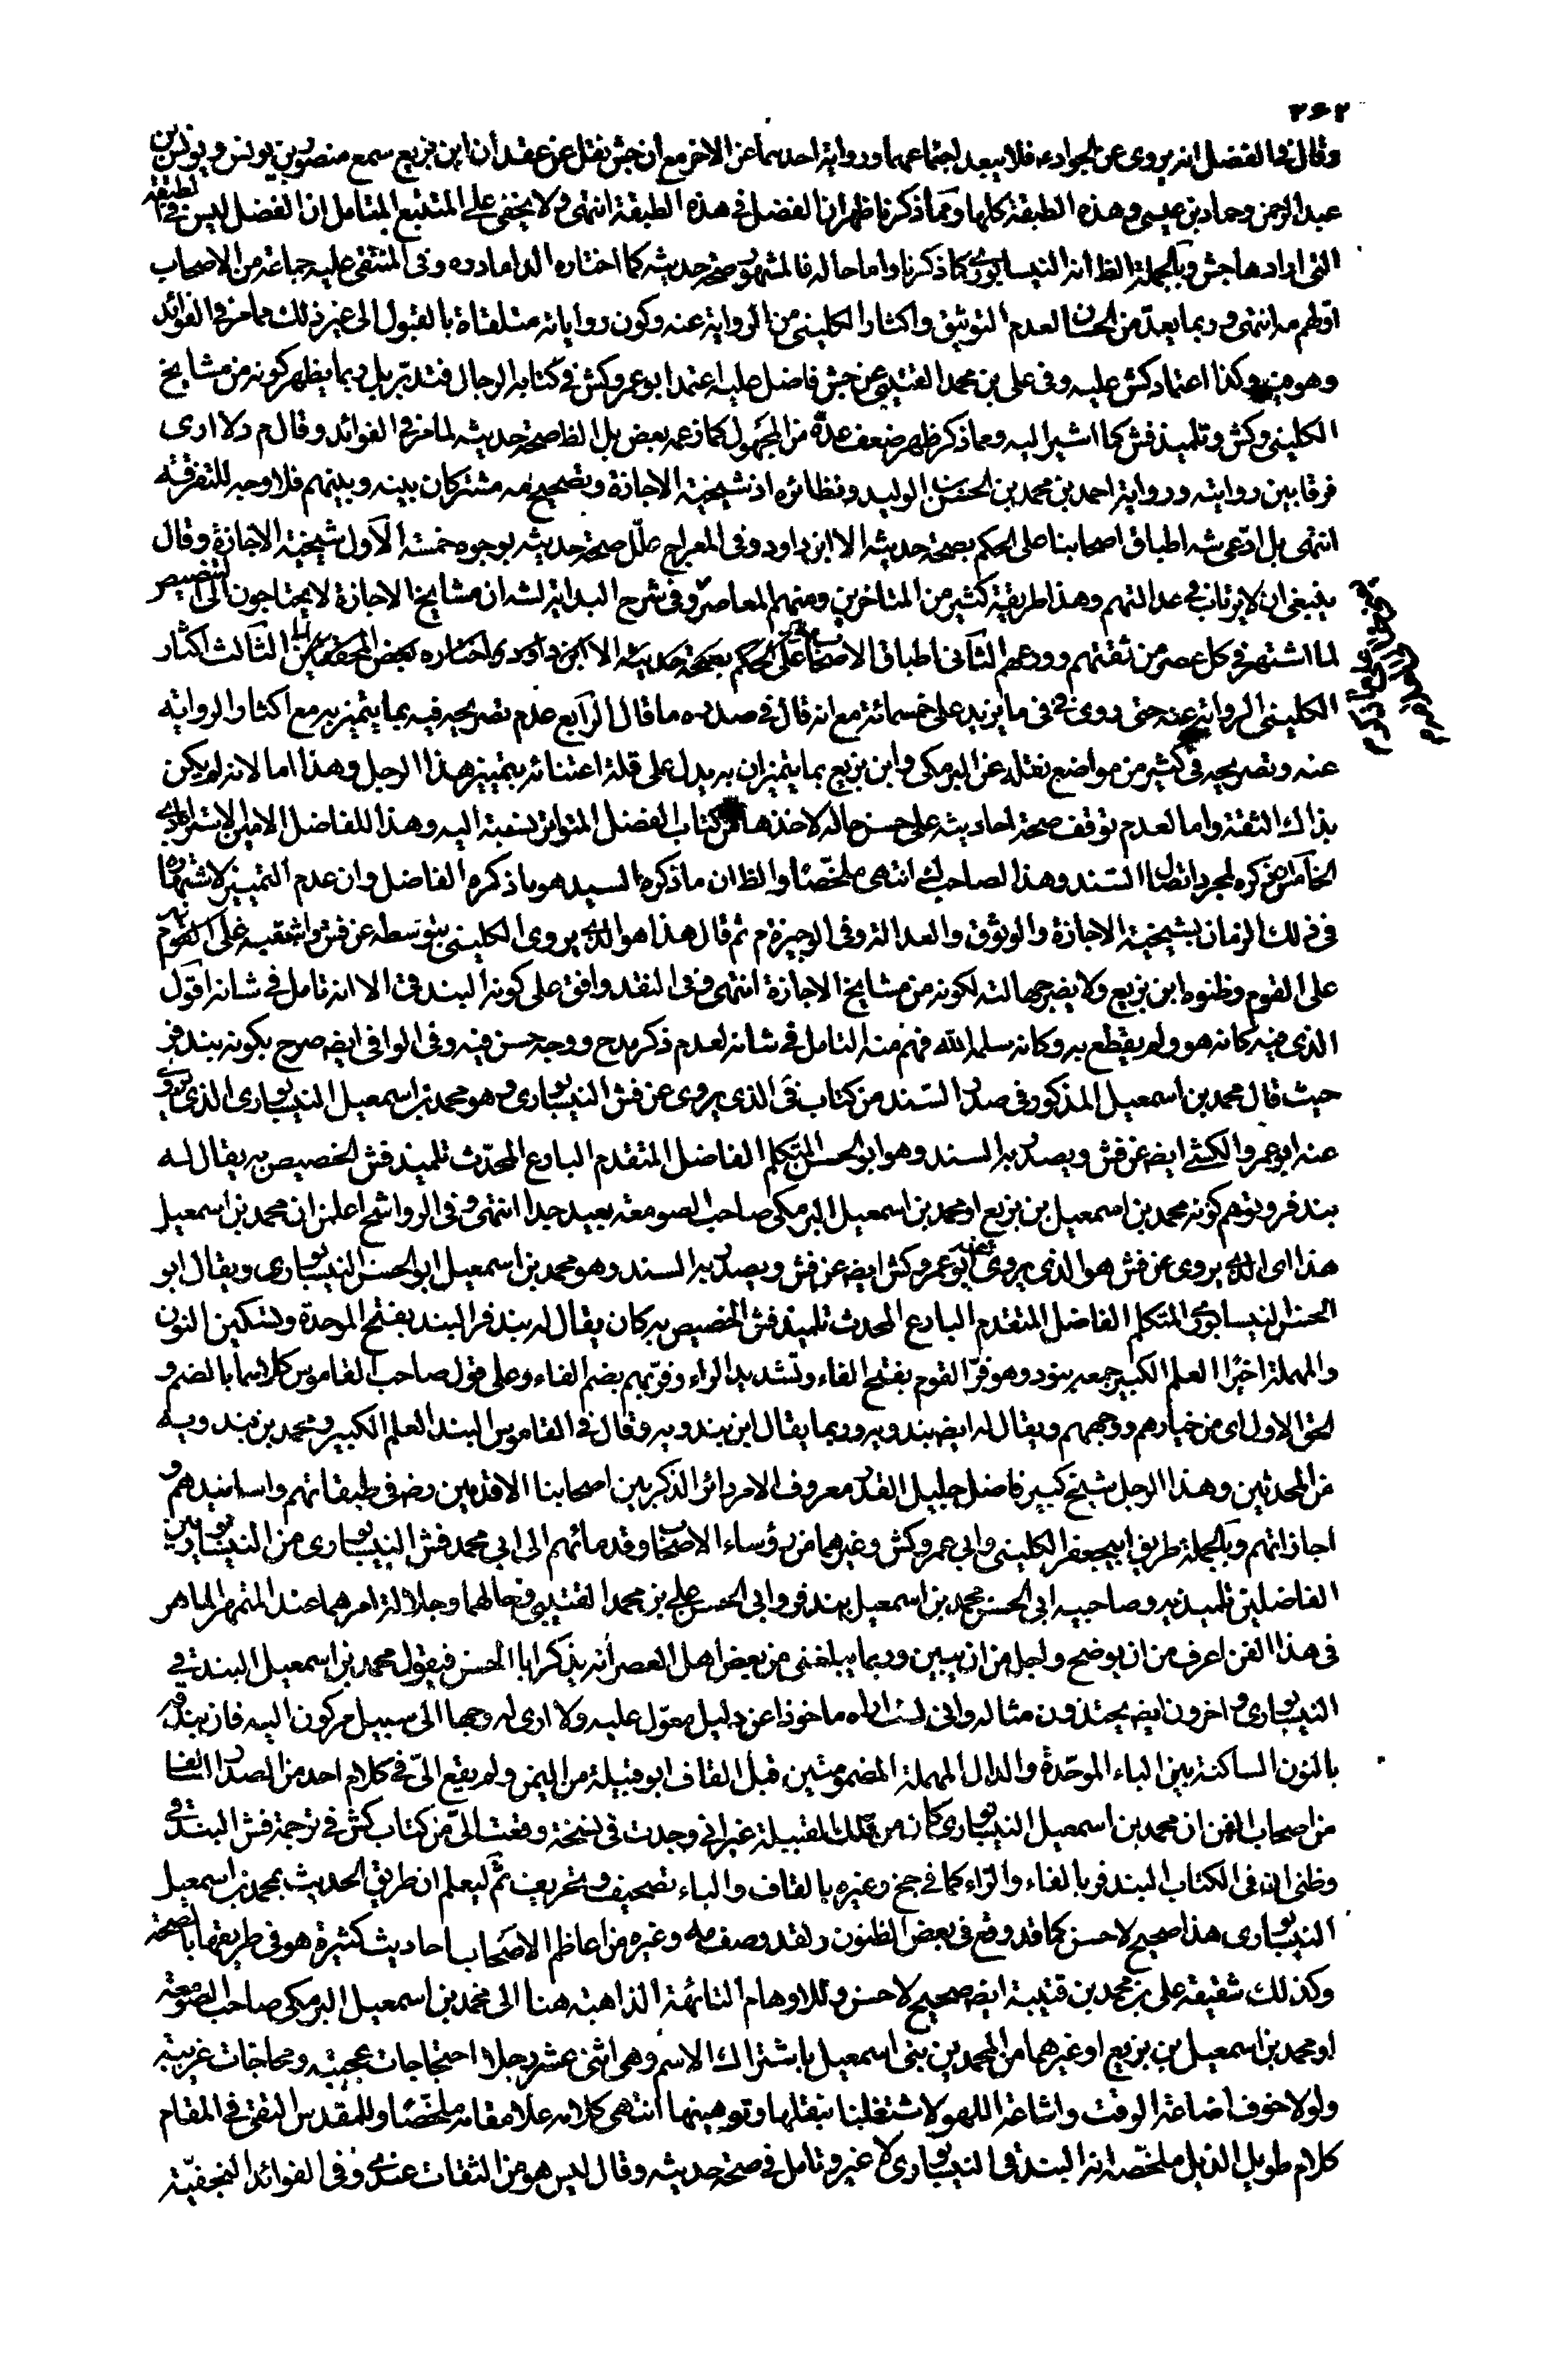 ٢٦٢
وقال في الفضل انه يروى عن الجواد ع فلا يبعد اجتماعهما ورواية احدهما عن الاخر مع ان جش نقل عن عقد ان ابن بزيع سمع منصور بن يونس ويونس بن
عبد الرحمن وحماد بن عيسى وهذه الطبقة كلها ومما ذكرنا ظهر ان الفضل في هذه الطبقة انتهى ولا يخفى على المتتبع المتامل ان الفضل ليس في الطبقة
التي ارادها جش وبالجملة الظ انه النيسابوري كما ذكرنا واما حاله فالمشهور صحة حديثه كما اختاره الداماد ره وفى المنتقى عليه جماعة من الاصحاب
اولهم مه انتهى وربما يعد من الحسان لعدم التوثيق واكثار الكليني من الرواية عنه وكون رواياته متلقاة بالقبول الى غير ذلك مما مر في الفوائد
وهو منه وكذا اعتماد كش عليه وفى على بن محمد القتيبي عن جش فاضل عليه اعتمد ابو عمرو كش في كتابه الرجال فتدبر بل ربما يظهر كونه من مشايخ
الكليني وكش وتلميذ فش كما اشير اليه ومما ذكر ظهر ضعف عده من المجهول كما زعمه بعض بل الظ صحة حديثه لما مر في الفوائد وقال م د لا ارى
فرقا بين روايته ورواية احمد بن محمد بن الحسن بن الوليد ونظائره اذ شيخية الاجازة وتصحيح مه مشتركان بينه وبينهم فلا وجه للتفرقة
انتهى بل ادعى شه اطباق اصحابنا على الحكم بصحة حديثه الا ابن داود وفى المعراج علل صحة حديثه بوجوه خمسة الاول شيخية الاجازة وقال
ينبغي ان لا يرتاب في عدالتهم وهذا طريقة كثير من المتاخرين ومنهم المعاصر وفى شرح البداية لشه ان مشايخ الاجازة لا يحتاجون الى التنصيص
لما اشتهر في كل عصر من ثقتهم وورعهم الثاني اطباق الاصحاب على الحكم بصحة حديثه الا ابن داود واختاره بعض المحققين الثالث اكثار
الكليني الرواية عنه حتى روى في في ما يزيد على خمسمائة مع انه قال في صدره ما قال الرابع عدم تصريحه فيه بما يتميز به مع اكثار الرواية
عنه وتصريحه في كثير من مواضع نقله عن البرمكي وابن بزيع بما يتميزان به يدل على قلة اعتنائه بتمييز هذا الرجل وهذا اما لانه لم يكن
بذاك الثقة واما لعدم توقف صحة احاديثه على حسن حاله لاخذها من كتاب الفضل المتواتر نسبته اليه وهذا للفاضل الامين الاسترابادي
الخامس ذكره لمجرد اتصال السند وهذا لصاحب ك انتهى ملخصا والظ ان ما ذكره السيد هو ما ذكره الفاضل وان عدم التمييز لاشتهاره
في ذلك الزمان بشيخية الاجازة والوثوق والعدالة وفى الوجيزة م ثم قال هذا هو الذي يروى الكليني بتوسطه عن فش واشتبه على القوم
على القوم وظنوه ابن بزيع ولا يضر جهالته لكونه من مشايخ الاجازة انتهى وفى النقد وافق على كونه البندقى الا انه تامل في شانه اقول
الذي فيه كانه هو ولم يقطع به وكانه سلمه الله فهم منه التامل في شانه لعدم ذكر مدح ووجه حسن فيه وفى الوافى ايضه صرح بكونه بندفر
حيث قال محمد بن اسمعيل المذكور في صدر السند من كتاب في الذي يروى عن فش النيسابوري هو محمد بن اسمعيل النيسابوري الذي يروى
عنه ابو عمرو الكشي ايضه عن فش ويصدر به السند وهو ابو الحسن المتكلم الفاضل المتقدم البارع المحدث تلميذ فش الخصيص به يقال له
بندفر وتوهم كونه محمد بن اسمعيل بن بزيع او محمد بن اسمعيل البرمكي صاحب الصومعة بعيد جدا انتهى وفى الرواشح اعلمن ان محمد بن اسمعيل
هذا اى الذي يروى عن فش هو الذي يروى عنه ابو عمرو كش ايضه عن فش ويصدر به السند وهو محمد بن اسمعيل ابو الحسن النيسابوري ويقال ابو
الحسن النيسابوري المتكلم الفاضل المتقدم البارع المحدث تلميذ فش الخصيص به كان يقال له بندفر البند بفتح الموحدة وتسكين النون
والمهملة اخيرا العلم الكبير جمعه بنود وهو فر القوم بفتح الفاء وتشديد الراء وفرتهم بضم الفاء وعلى قول صاحب القاموس كلاهما بالضم و
الحق الاول اى من خيارهم ووجههم ويقال له ايضه بندويه وربما يقال ابن بندويه وقال في القاموس البند العلم الكبير ومحمد بن بندويه
من المحدثين وهذا الرجل شيخ كبير فاضل جليل القدر معروف الامر دائر الذكر بين اصحابنا الاقدمين رضه في طبقاتهم واسانيدهم و
اجازاتهم وبالجملة طريق ابي جعفر الكليني وابي عمرو كش وغيرهما من رؤساء الاصحاب وقدمائهم الى ابي محمد فش النيسابوري من النيسابوريين
الفاضلين تلميذيه وصاحبيه ابي الحسن محمد بن اسمعيل بندفر وابي الحسن علي بن محمد القتيبي وحالهما وجلالة امرهما عند المتمهر الماهر
في هذا الفن اعرف من ان يوضح واجل من ان يبين وربما يبلغنى من بعض اهل العصر انه يذكر ابا الحسن فيقول محمد بن اسمعيل البندقى
النيسابوري واخرون ايضه يحتذون مثاله واني لست اراه ماخوذا عن دليل معول عليه ولا ارى له وجها الى سبيل مركون اليه فان بندقه
بالنون الساكنة بين الباء الموحدة والدال المهملة المضمومتين قبل القاف ابو قبيلة من اليمن ولم يقع الى في كلام احد من الصدر السالف
من اصحاب الفن ان محمد بن اسمعيل النيسابوري كان من تلك القبيلة غير اني وجدت في نسخة وقعت الى من كتاب كش في ترجمة فش البندقى
وظنى انه في الكتاب البندفر بالفاء والراء كما في جخ وغيره بالقاف والياء تصحيف وتحريف ثم ليعلم ان طريق الحديث بمحمد بن اسمعيل
النيسابوري هذا صحيح لا حسن كما قد وقع في بعض الظنون ولقد وصف مه وغيره من اعاظم الاصحاب احاديث كثيرة هو في طريقها بالصحة
وكذلك شقيقه على بن محمد بن قتيبة ايضه صحيح لا حسن وللاوهام التائهة الذاهبة هنا الى محمد بن اسمعيل البرمكي صاحب الصومعة
او محمد بن اسمعيل بن بزيع او غيرهما من المحمدين بنى اسمعيل باشتراك الاسم وهى اثنى عشر رجلا احتجاجات عجيبة ومحاجات غريبة
ولولا خوف اضاعة الوقت واشاعة اللهو لاشتغلنا بنقلها وتوهينها انتهى كلامه علا مقامه ملخصا وللمقدس التقى في المقام
كلام طويل الذيل ملخصه انه البندقى النيسابوري لا غير وتامل في صحة حديثه وقال ليس هو من الثقات عندي وفى الفوائد النجفية